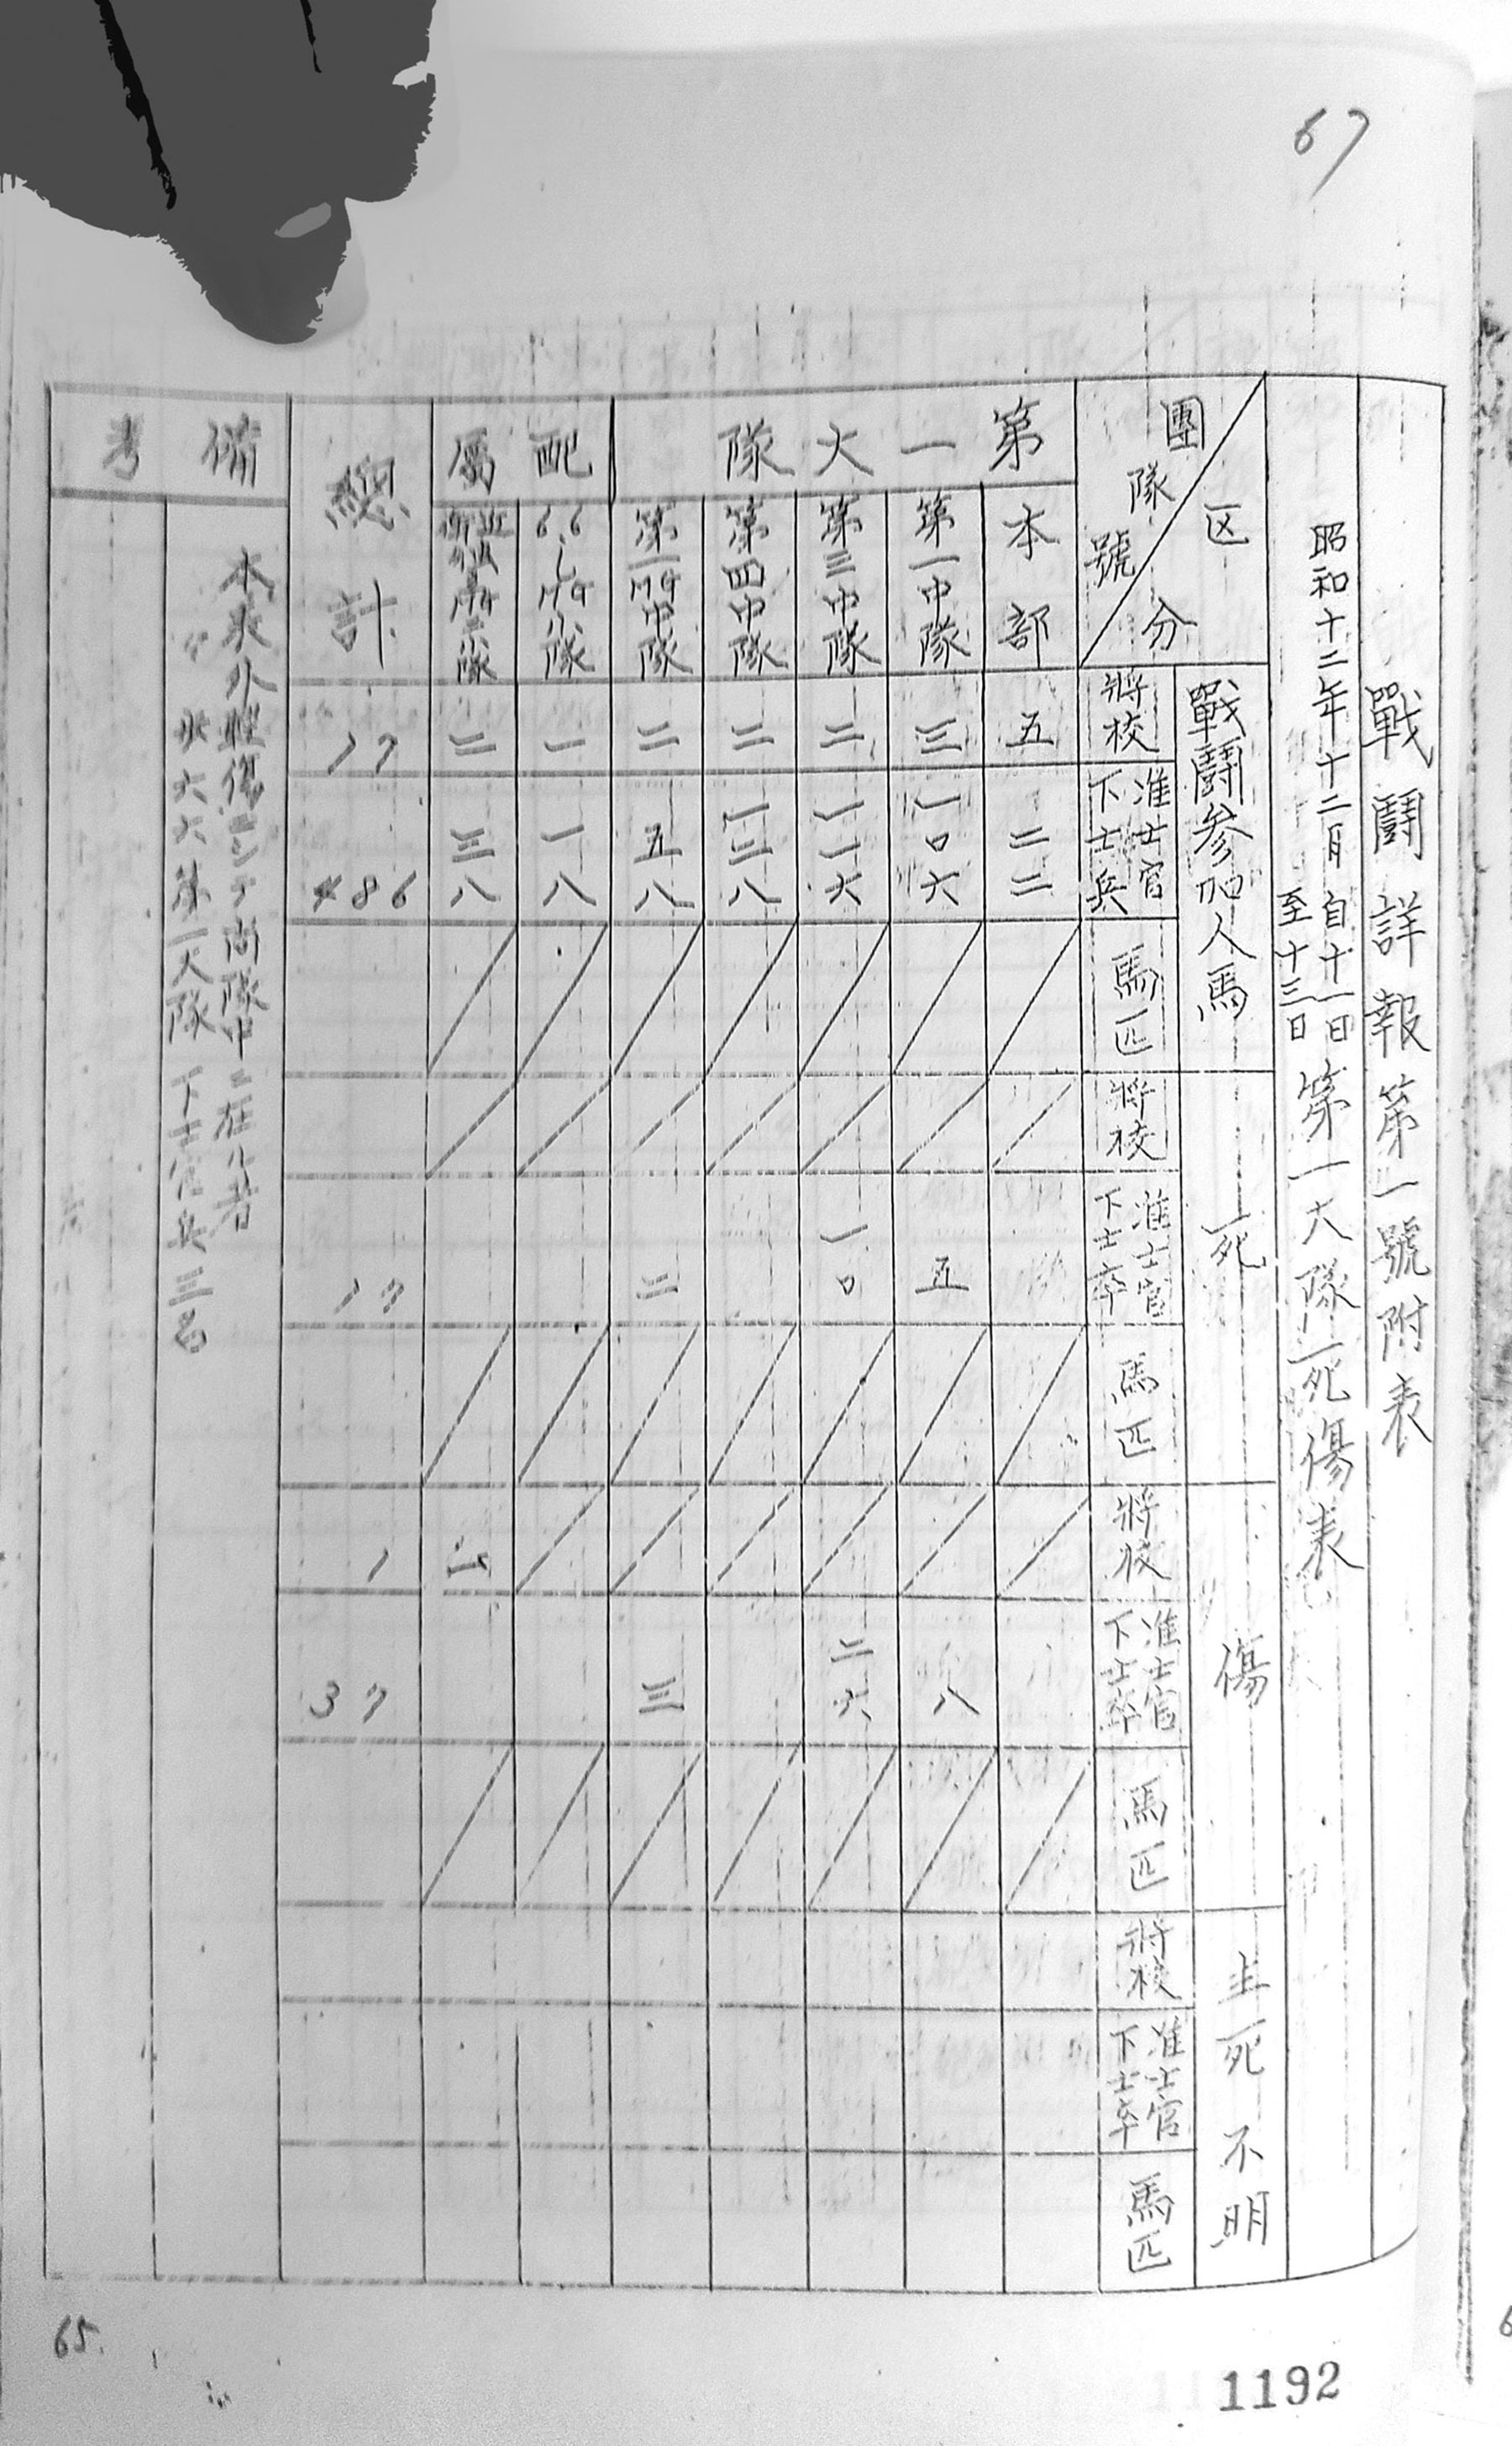 67
戰鬪詳報第一號附表
昭和十二年十二月自十一日至十三日第一大隊死傷表
区分
團隊號
戰鬪參加人馬
死
傷
生死不明
將校
准士官下士兵
馬匹
將校
准士官下士卒
馬匹
將校
准士官下士卒
馬匹
將校
准士官下士卒
馬匹
第一大隊
本部 五 二二
第一中隊 三 一〇六 五 八
第三中隊 二 一一六 一〇 二六
第四中隊 二 一三八
第一MG中隊 二 五八 二 三
配属
一 一八
二 三八 一
總計 17 486 17 1 37
備考
本表外輕傷ニシテ尚隊中ニ在ル者
歩六六第一大隊 下士官兵三名
65.
1192